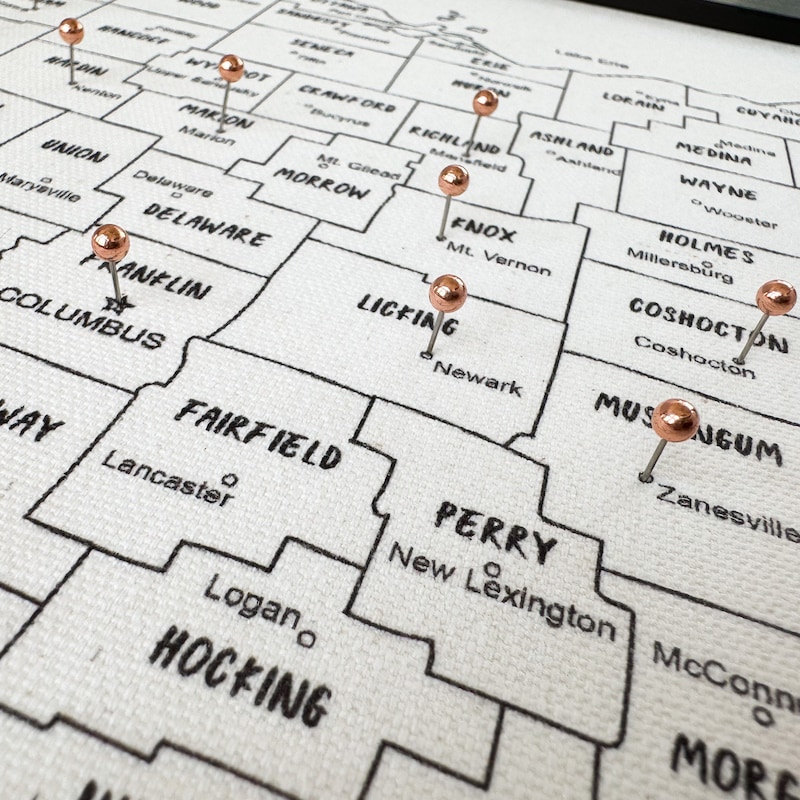 Lake Erie
HANCOCK
SENECA
Tiffin
ERIE
HARDIN
Kenton
WYANDOT
Upper Sandusky
CRAWFORD
Bucyrus
HURON
Norwalk
LORAIN
MARION
Marion
RICHLAND
Mansfield
ASHLAND
Ashland
MEDINA
Medina
UNION
Marysville
Mt. Gilead
MORROW
WAYNE
Wooster
Delaware
DELAWARE
KNOX
Mt. Vernon
HOLMES
Millersburg
FRANKLIN
COLUMBUS
LICKING
Newark
COSHOCTON
Coshocton
WAY
FAIRFIELD
Lancaster
MUSKINGUM
Zanesville
PERRY
New Lexington
Logan
HOCKING
McConn
MORG